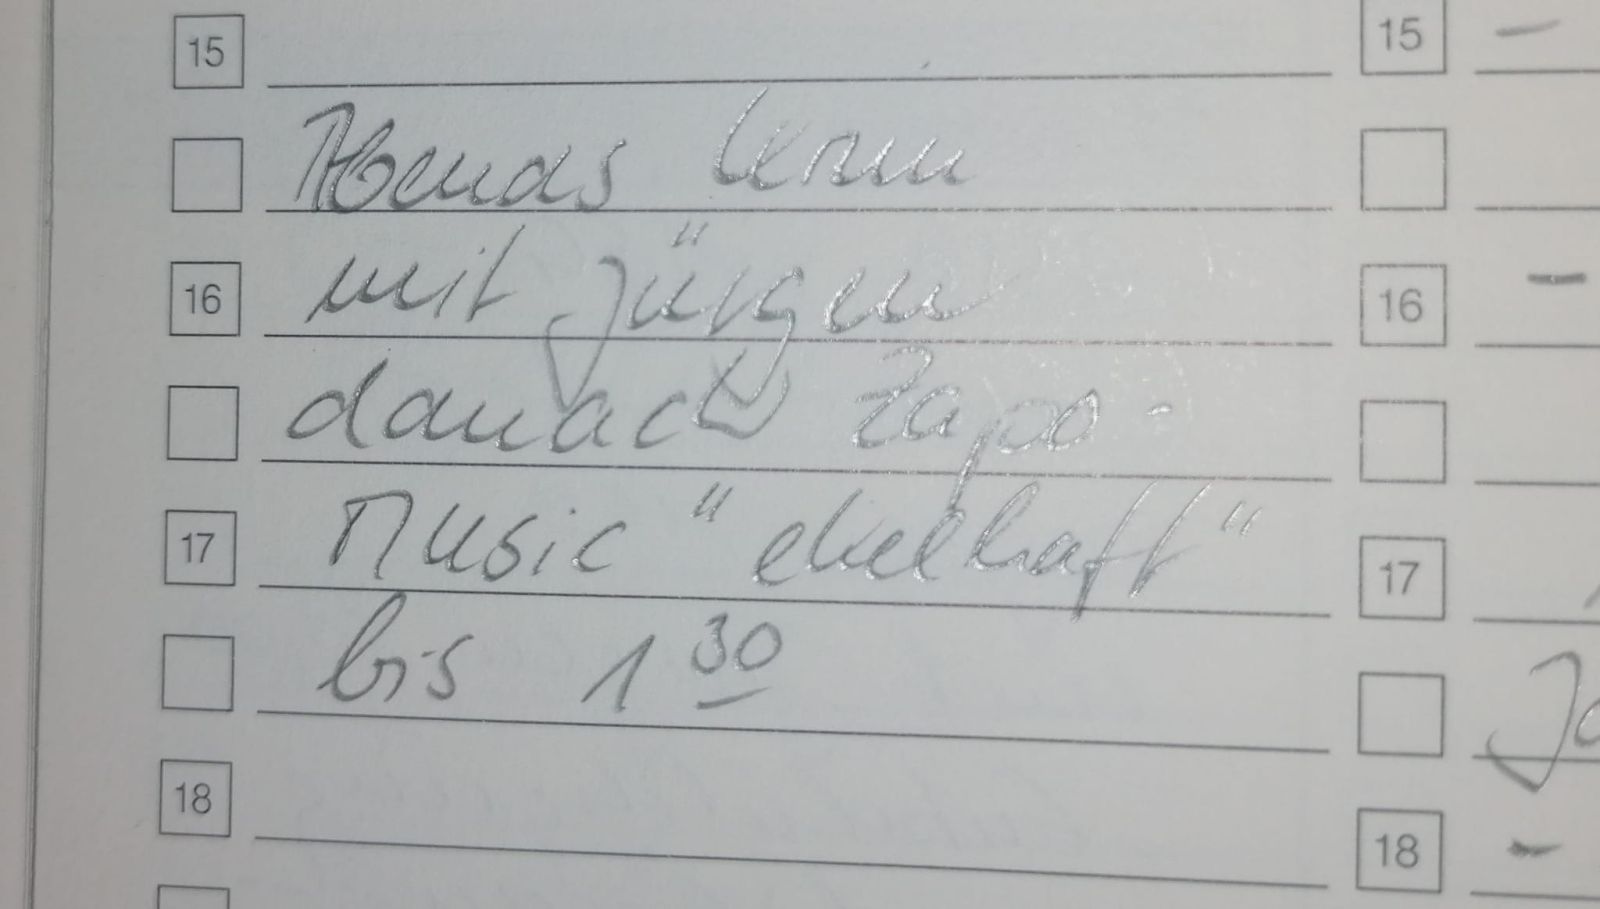 15 15 -
Abends lernen
mit Jürgen
16 16 -
danach Zapo-
Music "ekelhaft"
17 17
bis 1 30
18 18 -